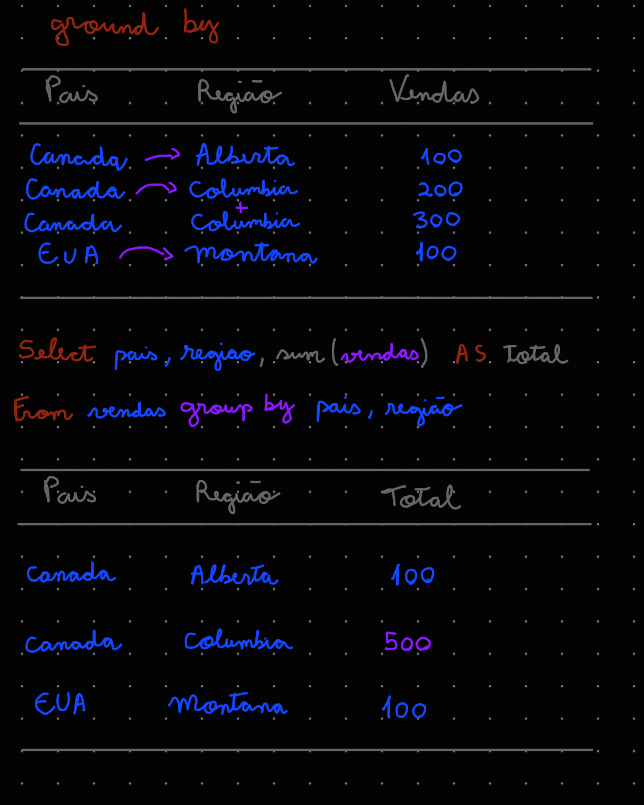 ground by
Pais Região Vendas
Canada → Alberta 100
Canada → Columbia 200
+
Canada Columbia 300
EUA → Montana 100
Select pais, regiao, sum(vendas) AS Total
From vendas group by pais, região
Pais Região Total
Canada Alberta 100
Canada Columbia 500
EUA Montana 100